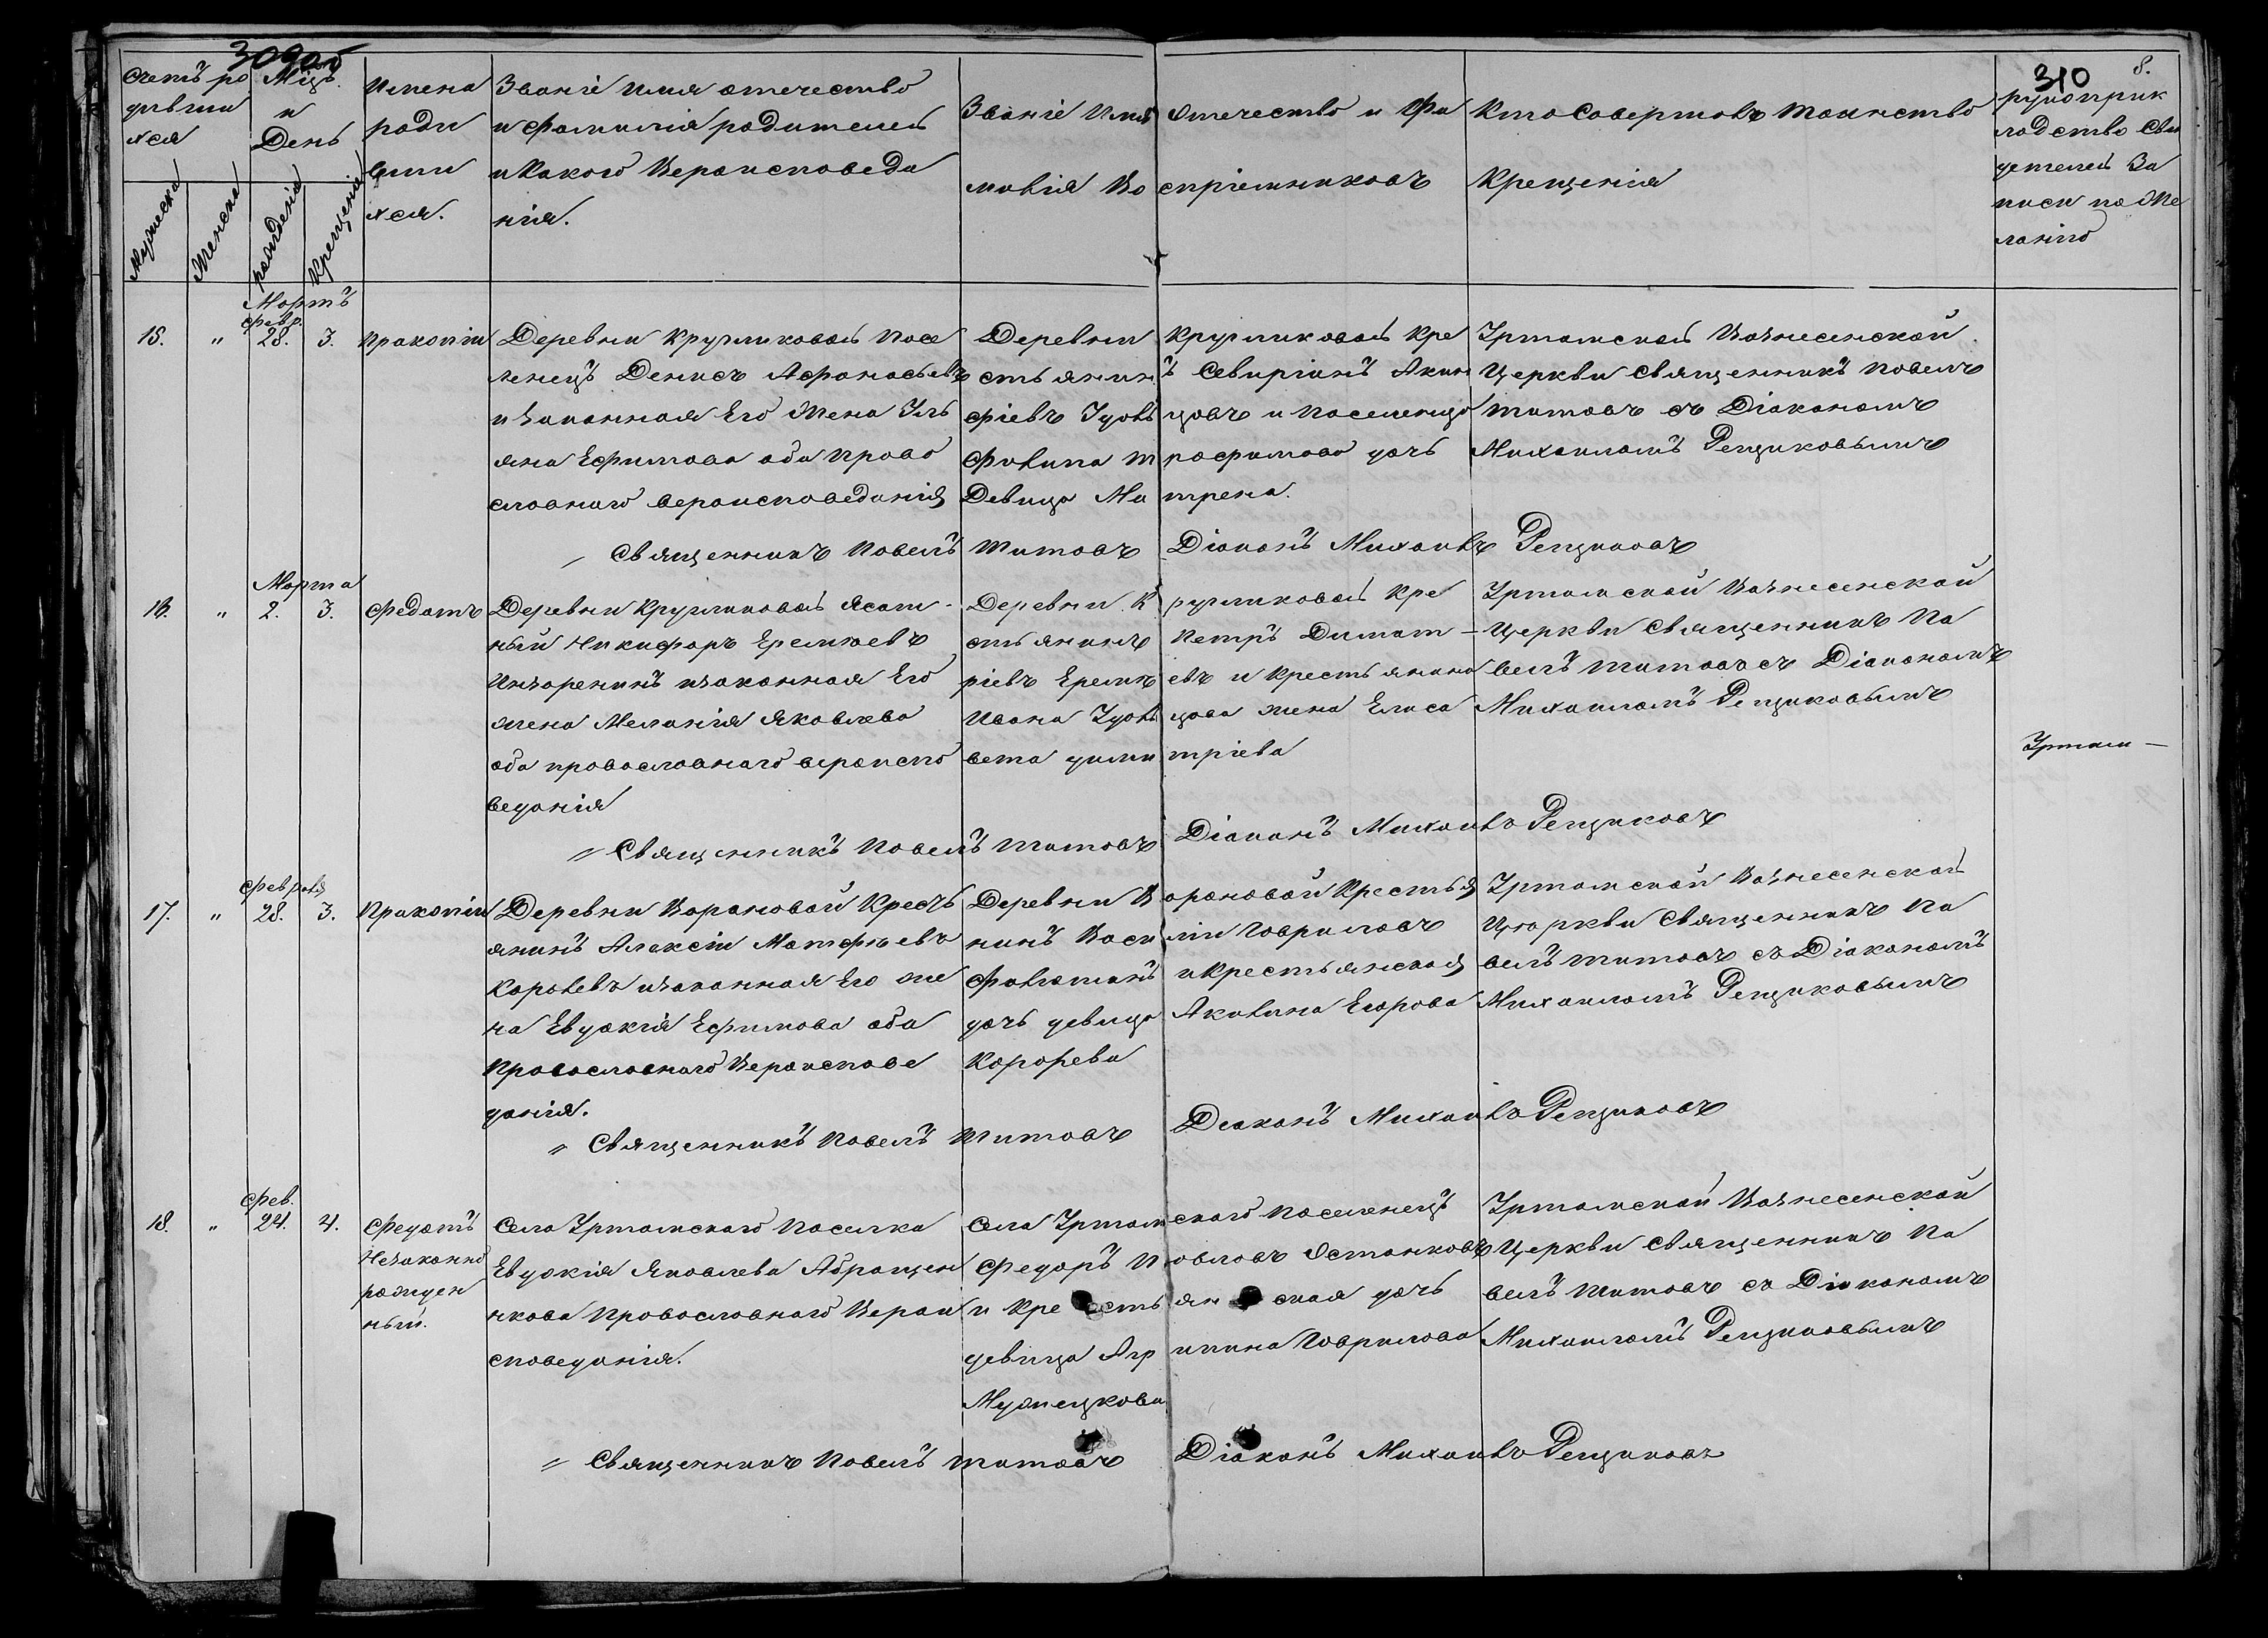 309об
310
8.
Счетъ ро
дивши
хся
Мужеска
Женска
Мцъ
и
День
рожденія
Крещенія
Имена
роди
вши
хся.
Званіе имя отечество
и фамилія родителей
и Какого Вероисповеда
нія.
Званіе Имя Отечество и Фа
милія Во спріемниковъ
Кто Совершалъ таинство
Крещенія
рукоприк
ладство сви
детелей За
писи по Же
ланію
Мартъ
15. " февр. 28. 3. Прокопій
Деревни Кругликовой Посе
ленецъ Денисъ Афонасьевъ
и законная Его Жена Уль
яна Ефимова оба Право
славнаго вероисповеданія
Деревни Кругликовой Кре
стьянинъ Севиріянъ Акин
фіевъ Удовъ и Поселенца
Филипа Трофимова дочь
Девица Ма трена.
Уртамской Вознесенской
Церкви Священникъ Павелъ
Титовъ съ Діакономъ
Михаиломъ Рещиковымъ
Священникъ Павелъ Титовъ Діаконъ Михаилъ Рещиковъ
Марта
16. " 2. 3. Федотъ
Деревни Кругликовой Ясаш-
ный Никифоръ Еремеевъ
и законная Его
жена Меланія Яковлева
оба православнаго вероиспо
веданія
Деревни Кругликовой Кре
стьянинъ Петръ Димит-
ріевъ Еремеевъ и крестьянина
Ивана жена Елиса
вета дими тріева
Уртамской Вознесенской
Церкви Священникъ Па
велъ Титовъ съ Діакономъ
Михаиломъ Рещиковымъ
Уртам-
" Священникъ Павелъ Титовъ Діаконъ Михаилъ Рещиковъ
февраля
17. " 28. 3. Прокопій
Деревни Вороновой Кресть
янинъ Алексій Матфеевъ
Королевъ и законная Его же
на Евдокія Ефимова оба
Православнаго Вероиспове
данія.
Деревни Вороновой Крестья
нинъ Васи лій Гавриловъ
и крестьянская
дочь девица Акилина Егорова
Королева
Уртамской Вознесенской
Церкви Священникъ Па
велъ Титовъ съ Діакономъ
Михаиломъ Рещиковымъ
" Священникъ Павелъ Титовъ Деаконъ Михаилъ Рещиковъ
фев.
18. " 24. 4. Федотъ
Незаконно
рожден
ный.
Села Уртамского Поселка
Евдокія Яковлева
Православнаго Верои
споведанія.
Села Уртамского Поселенецъ
Федоръ Павловъ Останковъ
и Крестьянская дочь
девица Агр ипина Гаврилова
Уртамской Вознесенской
Церкви Священникъ Па
велъ Титовъ съ Діакономъ
Михаиломъ Рещиковымъ
" Священникъ Павелъ Титовъ Діаконъ Михаилъ Рещиковъ